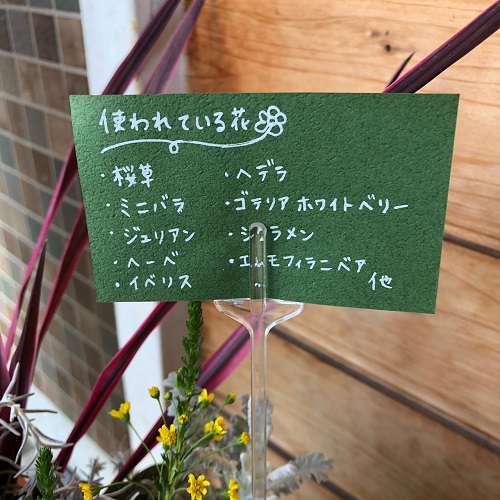 使われている花
・桜草
・ミニバラ
・ジュリアン
・ヘーベ
・イベリス
・ヘデラ
・ゴテリア ホワイトベリー
・シクラメン
・エレモフィラニベア
他